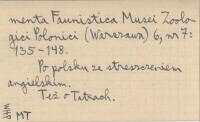 menta Faunistica Musei Zoolo-
gici Polonici (Warszawa) 6, nr 7:
135-148.
Po polsku ze streszczeniem
angielskim.
Też o Tatrach.
MT